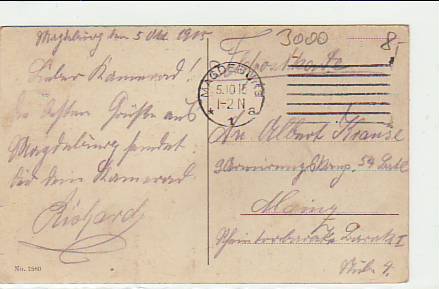 Magdeburg den 5 Okt. 1915
Lieber Kamerad!
Die besten Grüße aus
Magdeburg sendet
dir dein Kamerad
Richard
No. 1580
3000
8,
Feldpostkarte
MAGDEBURG
5.10.15
1-2 N
* 1 a
An Albert Krause
Mainz
Stube 4.